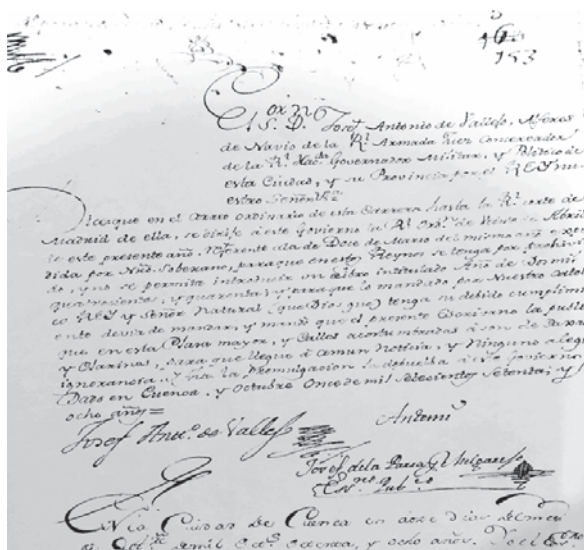 153
El S.r D.n Josef Antonio de Vallejo, Alferes
de Navio de la R.l Armada Juez Conservador
de la R.l Governador Militar, y Politico de
esta Ciudad, y su Provincia por el REY nu
estro Señor &.a
que en el Correo ordinario de esta Carrera hasta la R.l corte de
Madrid de ella, se dirije á este Govierno la R.l Ord.n de Veinte de Abril
de este presente año, referente ala de Doce de Marzo del mismo año expe
dida por Nrõ. Soberano, para que en estos Reynos se tenga por prohivi
do, y no se permita introducir un Libro intitulado Año de Dos mil
quatrocientos, y quarenta y para que lo mandado por Nuestro Catoli
co REY y Señor Natural (que Dios gue) tenga su debido cumplimi
ento devia de mandar, y mando que el presente Escrivano la publi
que en esta Plaza mayor, y Calles acostumbradas á son de
y Clarines, para que llegue á comun Noticia, y Ninguno alegue
ignorancia y la Promulgacion la debuelba á este Govierno
Dado en Cuenca, y Octubre Once de mil Setecientos Setenta, y
ocho años=
Josef Ant.o de Vallejo
Antemi
Josef de la Parra
Es.no Pub.co
En la Ciudad de Cuenca en doze dias del mes
de Oct.re de mil Set.s Setenta, y ocho años. Yo el Es.no